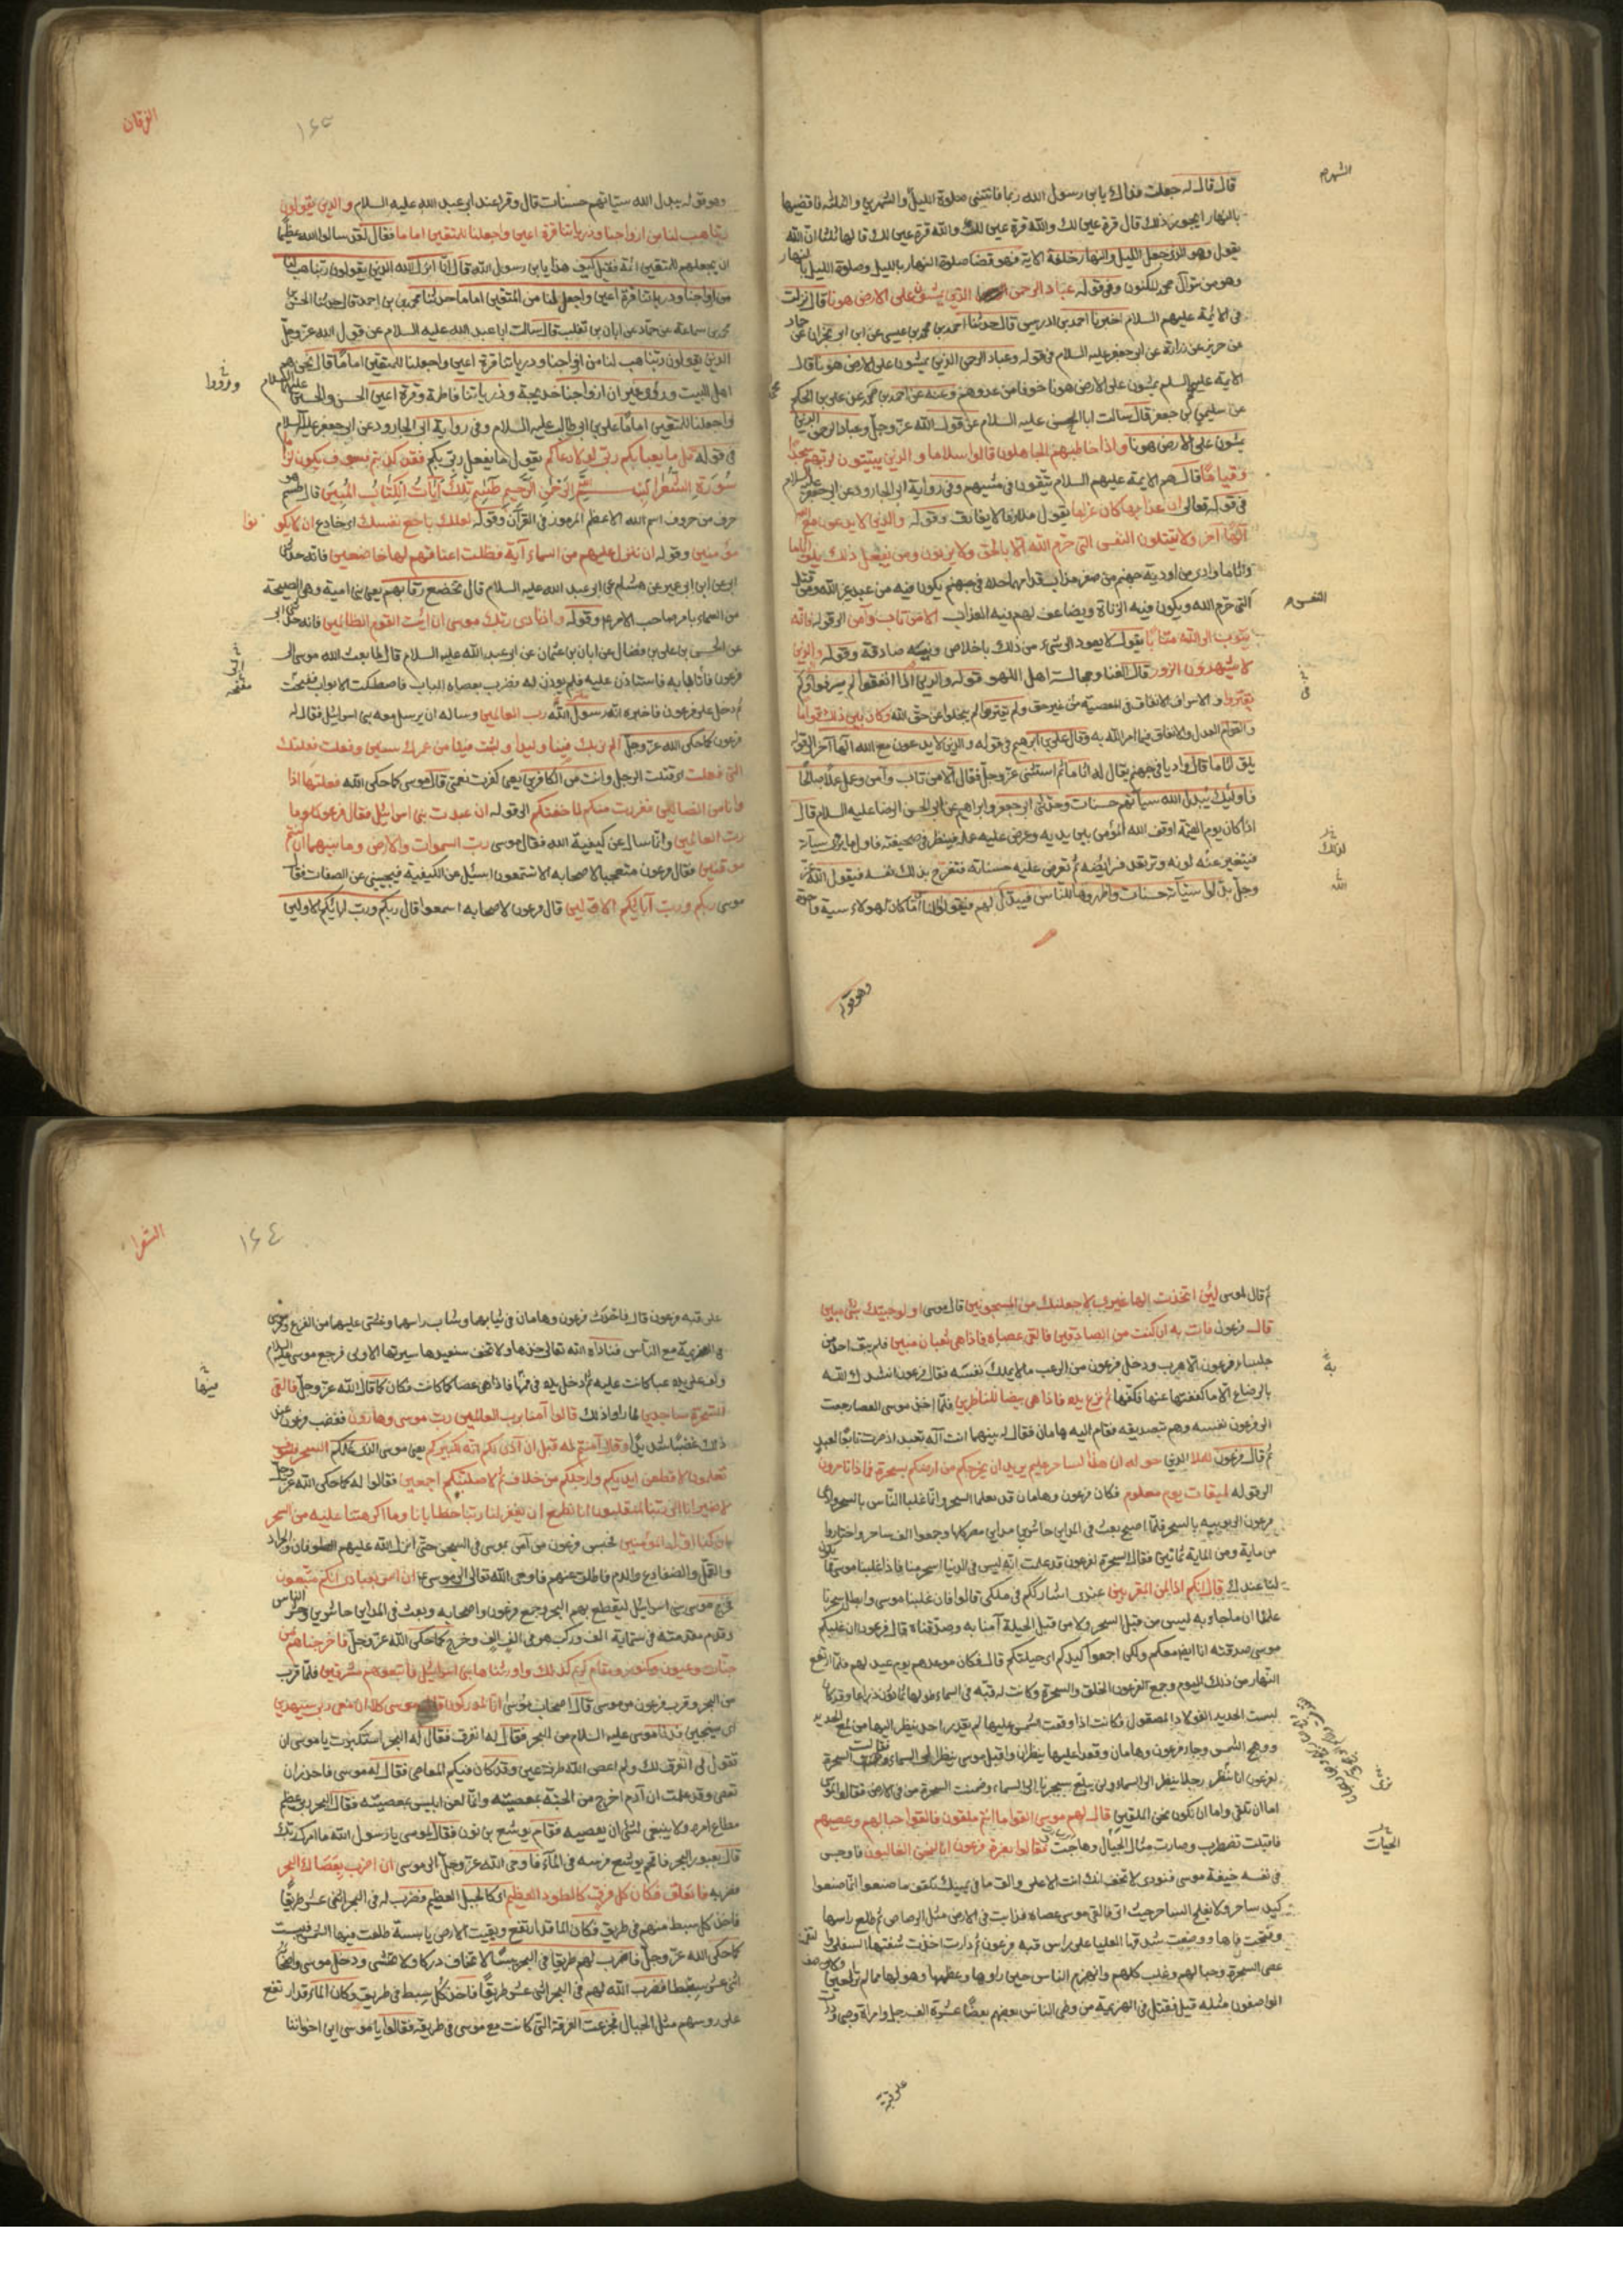 الشهرم
قال قال له جعلت فداك يابن رسول الله ربما فاتتنى صلوة الليل والشهرين والثلثه فاقضيها
بالنهار ايجوز ذلك قال قرة عين لك والله قرة عين لك والله قرة عين لك قالها ثلثا ان الله
يقول وهو الذى جعل الليل والنهار خلفة الاية فهو قضا صلوة النهار بالليل وصلوة الليل بالنهار
وهو من سر آل محمد المكنون وفى قوله عباد الرحمن الذين يمشون على الارض هونا قال نزلت
فى الائمة عليهم السلام اخبرنا احمد بن ادريس قال حدثنا احمد بن محمد بن عيسى عن ابن ابى نجران عن حماد
عن حريز عن زرارة عن ابى جعفر عليه السلام فى قوله وعباد الرحمن الذين يمشون على الارض هونا قال
الائمة عليهم السلم يمشون على الارض هونا خوفا من عدوهم وعنه عن احمد بن محمد عن على بن الحكم
عن سليمن بن جعفر قال سالت ابا الحسن عليه السلام عن قول الله عز وجل وعباد الرحمن الذين
يمشون على الارض هونا واذا خاطبهم الجاهلون قالوا سلاما والذين يبيتون لربهم سجدا
وقياما قال هم الائمة عليهم السلام يتقون فى مشيهم وفى رواية ابى الجارود عن ابى جعفر عليه السلام
فى قوله تعالى ان عذابها كان غراما يقول ملازما لا يفارق وقوله والذين لا يدعون مع الله
الها آخر ولا يقتلون النفس التى حرم الله الا بالحق ولا يزنون ومن يفعل ذلك يلق اثاما
واثاما وادى من اودية جهنم من صفر مذاب قدامها حدة فى جهنم يكون فيه من عبد غير الله ومن قتل
النفس م
التى حرم الله ويكون فيه الزناة ويضاعف لهم فيه العذاب الا من تاب وآمن الى قوله فانه
يتوب الى الله متابا يقول لا يعود الى شىء من ذلك باخلاص ونية صادقة وقوله والذين
لا يشهدون الزور قال الغنا ومجالسة اهل اللهو قوله والذين اذا انفقوا لم يسرفوا ولم
يقتروا والاسراف الانفاق فى المعصية من غير حق ولم يقتروا لم يبخلوا عن حق الله وكان بين ذلك قواما
والقوام العدل والانفاق فيما امر الله به وقال على بن ابرهيم فى قوله والذين لا يدعون مع الله الها آخر الى قوله
يلق اثاما قال واديا فى جهنم يقال له اثاما ثم استثنى عز وجل فقال الا من تاب وآمن وعمل عملا صالحا
فاولئك يبدل الله سيآتهم حسنات وحدثنى ابى جعفر وابراهيم عن ابى الحسن الرضا عليه السلام قال
اذا كان يوم القيمة اوقف الله المؤمن بين يديه وعرض عليه عمله فينظر فى صحيفته فاول ما يرى سيآته
فيتغير عنه لونه وترتعد فرايضه ثم تعرض عليه حسناته فتفرح بذلك نفسه فيقول الله عز
وجل بدلوا سيآته حسنات واظهروها للناس فيبدل لهم فيقول الناس اما كان لهولاء سية واحدة
لذلك
الله
وهو قوله
الفرقان
١٦٥
وهو قوله يبدل الله سيئاتهم حسنات قال وقرا عند ابى عبد الله عليه السلام والذين يقولون
ربنا هب لنا من ازواجنا وذرياتنا قرة اعين واجعلنا للمتقين اماما فقال لقد سالوا الله عظيما
ان يجعلهم للمتقين ائمة فقيل كيف هذا يابن رسول الله قال انما انزل الله الذين يقولون ربنا هب لنا
من ازواجنا وذرياتنا قرة اعين واجعل لنا من المتقين اماما حدثنا محمد بن احمد قال حدثنا الحسن بن
محمد بن سماعة عن حماد عن ابان بن تغلب قال سالت ابا عبد الله عليه السلام عن قول الله عز وجل
الذين يقولون ربنا هب لنا من ازواجنا وذرياتنا قرة اعين واجعلنا للمتقين اماما قال نحن هم
وروزا
اهل البيت وروى غيره ان ازواجنا خديجة وذرياتنا فاطمة وقرة اعين الحسن والحسين عليهما السلام
واجعلنا للمتقين اماما على بن ابى طالب عليه السلام وفى رواية ابى الجارود عن ابى جعفر عليه السلام
فى قوله قل ما يعبأ بكم ربى لولا دعاكم يقول ما يفعل ربى بكم فقد كذبتم فسوف يكون لزاما
سورة الشعرا بسم الله الرحمن الرحيم طسم تلك آيات الكتاب المبين قال طسم هو
حرف من حروف اسم الله الاعظم المرموز فى القرآن وقوله لعلك باخع نفسك اى خادع ان لا يكو نوا
مؤمنين وقوله ان ننزل عليهم من السماء آية فظلت اعناقهم لها خاضعين فانه حدثنى
ابى عن ابن ابى عمير عن هشام عن ابى عبد الله عليه السلام قال تخضع رقابهم يعنى بنى امية وهى الصيحة
من السماء باسم صاحب الامر ع وقوله واذ نادى ربك موسى ان ائت القوم الظالمين فانه حدثنى ابى
عن الحسن بن على بن فضال عن ابان بن عثمان عن ابى عبد الله عليه السلام قال لما بعث الله موسى الى
فرعون فأتى بابه فاستاذن عليه فلم يوذن له فضرب بعصاه الباب فاصطكت الابواب ففتحت
ثم دخل على فرعون فاخبره انه رسول الله رب العالمين وساله ان يرسل معه بنى اسرائيل فقال له
فرعون كما حكى الله عز وجل الم نربك فينا وليدا ولبثت فينا من عمرك سنين وفعلت فعلتك
التى فعلت اى قتلت الرجل وانت من الكافرين يعنى كفرت نعمتى قال موسى كما حكى الله فعلتها اذا
وانا من الضالين ففررت منكم لما خفتكم الى قوله ان عبدت بنى اسرائيل فقال فرعون وما
رب العالمين وانما سال عن كيفية الله فقال موسى رب السموات والارض وما بينهما ان كنتم
موقنين فقال فرعون متعجبا لاصحابه الا تستمعون اسئله عن الكيفية فيجيبنى عن الصفات فقال
موسى ربكم ورب آبائكم الاولين قال فرعون لاصحابه اسمعوا قال ربكم ورب ابائكم الاولين
ثم قال لموسى لئن اتخذت الها غيرى لاجعلنك من المسجونين قال موسى اولو جئتك بشئ مبين
قال فرعون فات به ان كنت من الصادقين فالقى عصاه فاذا هى ثعبان مبين فلم يبق احد من
جلساء فرعون الا هرب ودخل فرعون من الرعب ما لم يملك نفسه فقال فرعون انشدك الله
بالرضاع الا ما كففتها عنى فكفها ثم نزع يده فاذا هى بيضا للناظرين فلما اخذ موسى العصا رجعت
الى فرعون نفسه وهم بتصديقه فقام اليه هامان فقال له بينما انت اله تعبد اذ صرت تابعا لعبد
ثم قال فرعون للملا الذين حوله ان هذا لساحر عليم يريد ان يخرجكم من ارضكم بسحره فماذا تامرون
الى قوله لميقات يوم معلوم فكان فرعون وهامان قد تعلما السحر وانما غلبا الناس بالسحر وادعى
فرعون الربوبية بالسحر فلما اصبح بعث فى المداين حاشرين مداين مصر كلها وجمعوا الف ساحر واختاروا
من ماية ومن الماية ثمانين فقال السحرة لفرعون قد علمت انه ليس فى الدنيا اسحر منا فاذا غلبنا موسى فما يكون
لنا عندك قال انكم اذا لمن المقربين عندى اشارككم فى ملكى قالوا فان غلبنا موسى وابطل سحرنا
علمنا ان ما جاء به ليس من قبل السحر ولا من قبل الحيلة آمنا به وصدقناه قال فرعون ان غلبكم
موسى صدقته انا ايضا معكم ولكن اجمعوا كيدكم اى حيلتكم قال فكان موعدهم يوم عيد لهم فلما ارتفع
النهار من ذلك اليوم وجمع الفرعون الخلق والسحرة وكانت له قبة فى السماء طولها ثمانون ذراعا وقد كان
لبست الحديد الفولاد المصقول فكانت اذا وقعت الشمس عليها لم يقدر احد ينظر اليها من لمع الحديد
ووهج الشمس وجاء فرعون وهامان وقعدا عليها ينظران واقبل موسى ينظر الى السماء فقالت السحرة
لفرعون انا نرى رجلا ينظر الى السماء ولن يبلغ سحرنا الى السماء وضمنت السحرة من فى الارض فقالوا لموسى
اما ان تلقى واما ان نكون نحن الملقين قال لهم موسى القوا ما انتم ملقون فالقوا حبالهم وعصيهم
الحيات
فاقبلت تضطرب وصارت مثل الجبال وهاجت فقالوا بعزة فرعون انا لنحن الغالبون فاوجس
فى نفسه خيفة موسى فنودى لا تخف انك انت الاعلى والق ما فى يمينك تلقف ما صنعوا انما صنعوا
كيد ساحر ولا يفلح الساحر حيث اتى فالقى موسى عصاه فذابت فى الارض مثل الرصاص ثم طلع راسها
وفتحت فاها ووضعت شدقها العليا على راس قبة فرعون ثم دارت اخذت شفتها السفلى والتقمت
عصى السحرة وحبالهم وغلب كلهم وانهزم الناس حين راوها وعظمها وهولها مما لم تر العين
الواصفون مثله قبل فقتل فى الهزيمة من وطى الناس بعضهم بعضا عشرة الف رجل وامراة وصبى ودارت
على قبة
الشعراء
١٦٤
على قبة فرعون قال فاحدث فرعون وهامان فى ثيابهما وشاب راسهما وغشى عليهما من الفزع ومر موسى
فى الهزيمة مع الناس فناداه الله تعالى خذها ولا تخف سنعيدها سيرتها الاولى فرجع موسى عليه السلام
ولف على يده عبا كانت عليه ثم ادخل يده فى فمها فاذا هى عصا كما كانت فكان كما قال الله عز وجل فالقى
السحرة ساجدين لما راوا ذلك قالوا آمنا برب العالمين رب موسى وهارون فغضب فرعون عند
ذلك غضبا شديدا وقال آمنتم له قبل ان آذن لكم انه لكبيركم يعنى موسى الذى علمكم السحر فسوف
تعلمون لاقطعن ايديكم وارجلكم من خلاف ثم لاصلبنكم اجمعين فقالوا له كما حكى الله عز وجل
لا ضير انا الى ربنا لمنقلبون انا نطمع ان يغفر لنا ربنا خطايانا وما اكرهتنا عليه من السحر
ان كنا اول المؤمنين فحبس فرعون من آمن بموسى فى السجن حتى انزل الله عليهم الطوفان والجراد
والقمل والضفادع والدم فاطلق عنهم فاوحى الله تعالى الى موسى ان اسر بعبادى انكم متبعون
فخرج موسى ببنى اسرائيل ليقطع بهم البحر وجمع فرعون واصحابه وبعث فى المداين حاشرين وحشر الناس
وقدم مقدمته فى ستماية الف وركب هو فى الف الف وخرج كما حكى الله عز وجل فاخرجناهم من
جنات وعيون وكنوز ومقام كريم كذلك واورثناها بنى اسرائيل فاتبعوهم مشرقين فلما قرب
من البحر وقرب فرعون من موسى قال اصحاب موسى انا لمدركون قال موسى كلا ان معى ربى سيهدين
اى سينجين فدنا موسى عليه السلام من البحر فقال له انفرق فقال له البحر استكبرت يا موسى ان
تقول لى انفرق لك ولم اعص الله طرفة عين وقد كان فيكم المعاصى فقال له موسى فاحذر ان
تعصى وقد علمت ان آدم اخرج من الجنة بمعصيته وانما لعن ابليس بمعصيته فقال البحر ربى عظيم
مطاع امره ولا ينبغى لشئ ان يعصيه فقام يوشع بن نون فقال لموسى يا رسول الله ما امرك ربك
قال بعبور البحر فاقحم يوشع فرسه فى الماء فاوحى الله عز وجل الى موسى ان اضرب بعصاك البحر
فضربه فانفلق فكان كل فرق كالطود العظيم اى كالجبل العظيم فضرب له فى البحر اثنى عشر طريقا
فاخذ كل سبط منهم فى طريق فكان الماء قد ارتفع وبقيت الارض يابسة طلعت فيها الشمس فيبست
كما حكى الله عز وجل فاضرب لهم طريقا فى البحر يبسا لا تخاف دركا ولا تخشى ودخل موسى واصحابه
اثنى عشر سبطا فضرب الله لهم فى البحر اثنى عشر طريقا فاخذ كل سبط فى طريق وكان الماء قد ارتفع
على روسهم مثل الجبال فجزعت الفرقة التى كانت مع موسى فى طريقه فقالوا يا موسى اين اخواننا